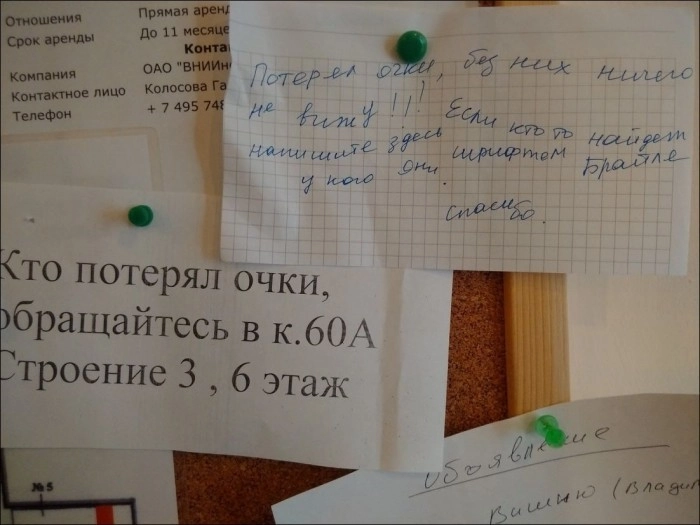 Отношения Прямая аренд
Срок аренды До 11 месяце
Конта
Компания ОАО "ВНИИн
Контактное лицо Колосова Га
Телефон + 7 495 748
Потерял очки, без них ничего
не вижу!!! Если кто то найдет
напишите здесь шрифтом Брайле
у кого они.
спасибо.
Кто потерял очки,
обращайтесь в к.60А
Строение 3 , 6 этаж
№5
Объявление
(Влади